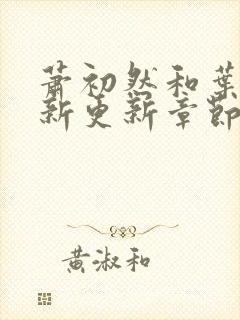 萧初然和葉
新更新章節
黄淑和